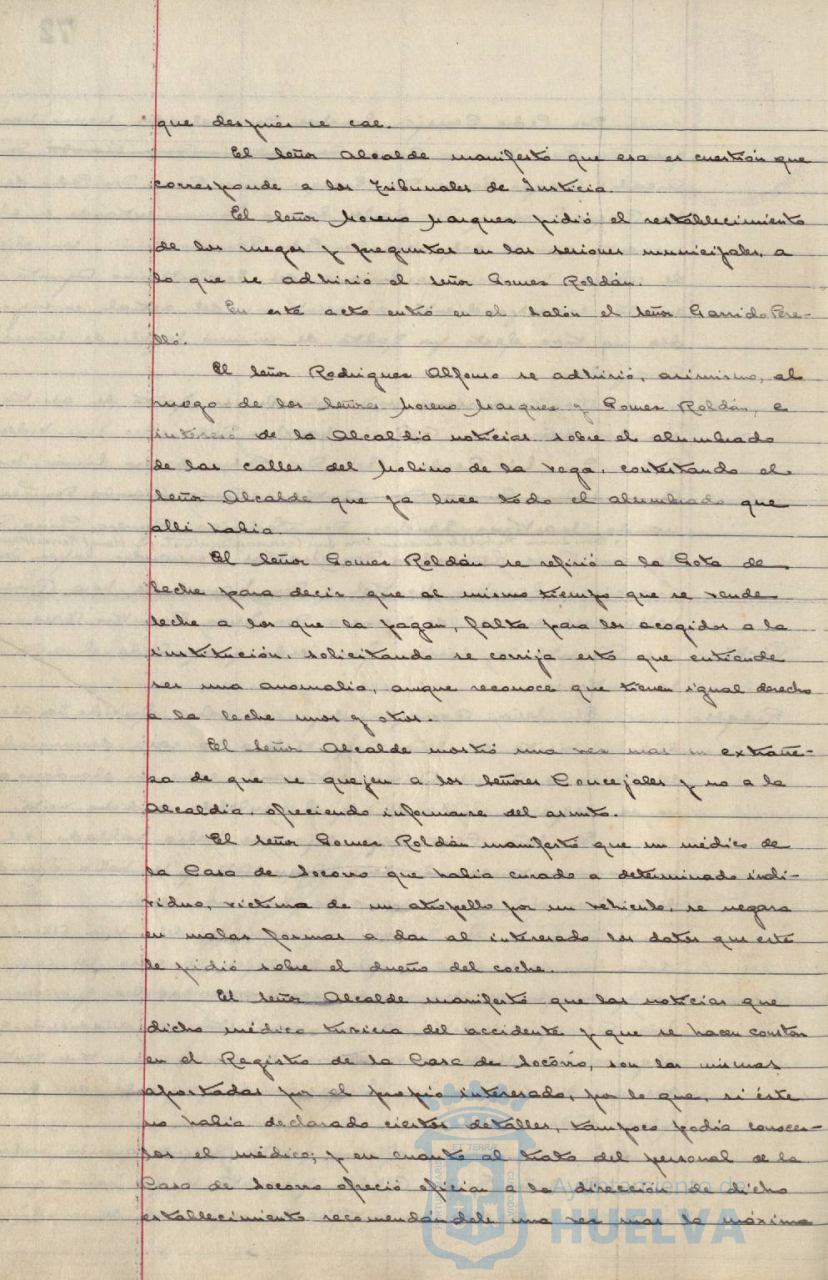 que despues se cae.
El Señor Alcalde manifestó que esa es cuestión que
corresponde a los Tribunales de Justicia.
El Señor Moreno Marquez pidió el restablecimiento
de los ruegos y preguntas en las sesiones municipales, a
lo que se adhirió el señor Gomez Roldán.
En este acto entró en el Salón el señor Garrido Pere-
lló.
El Señor Rodriguez Alfonso se adhirió, asimismo, al
ruego de los Señores Moreno Marquez y Gomez Roldán, e
interesó de la Alcaldia noticias sobre el alumbrado
de las calles del Molino de la Vega, contestando el
Señor Alcalde que ya luce todo el alumbrado que
alli habia.
El Señor Gomez Roldán se refirió a la Gota de
leche para decir que al mismo tiempo que se vende
leche a los que la pagan, falta para los acogidos a la
institución, solicitando se corrija esto que entiende
ser una anomalia, aunque reconoce que tienen igual derecho
a la leche unos y otros.
El Señor Alcalde mostró una vez mas su extrañe-
za de que se quejen a los Señores Concejales y no a la
Alcaldia, ofreciendo informarse del asunto.
El Señor Gomez Roldán manifestó que un médico de
la Casa de Socorro que habia curado a determinado indi-
viduo, victima de un atropello por un vehiculo, se negara
en malas formas a dar al interesado los datos que este
le pidió sobre el dueño del coche.
El Señor Alcalde manifestó que las noticias que
dicho médico tuviera del accidente y que se hacen constar
en el Registro de la Casa de Socorro, son las mismas
aportadas por el propio interesado, por lo que, si éste
no habia declarado ciertos detalles, tampoco podia conocer-
los el médico; y en cuanto al trato del personal de la
Casa de Socorro ofreció oficiar a la dirección de dicho
establecimiento recomendándole una vez mas la máxima
Ayuntamiento de
HUELVA